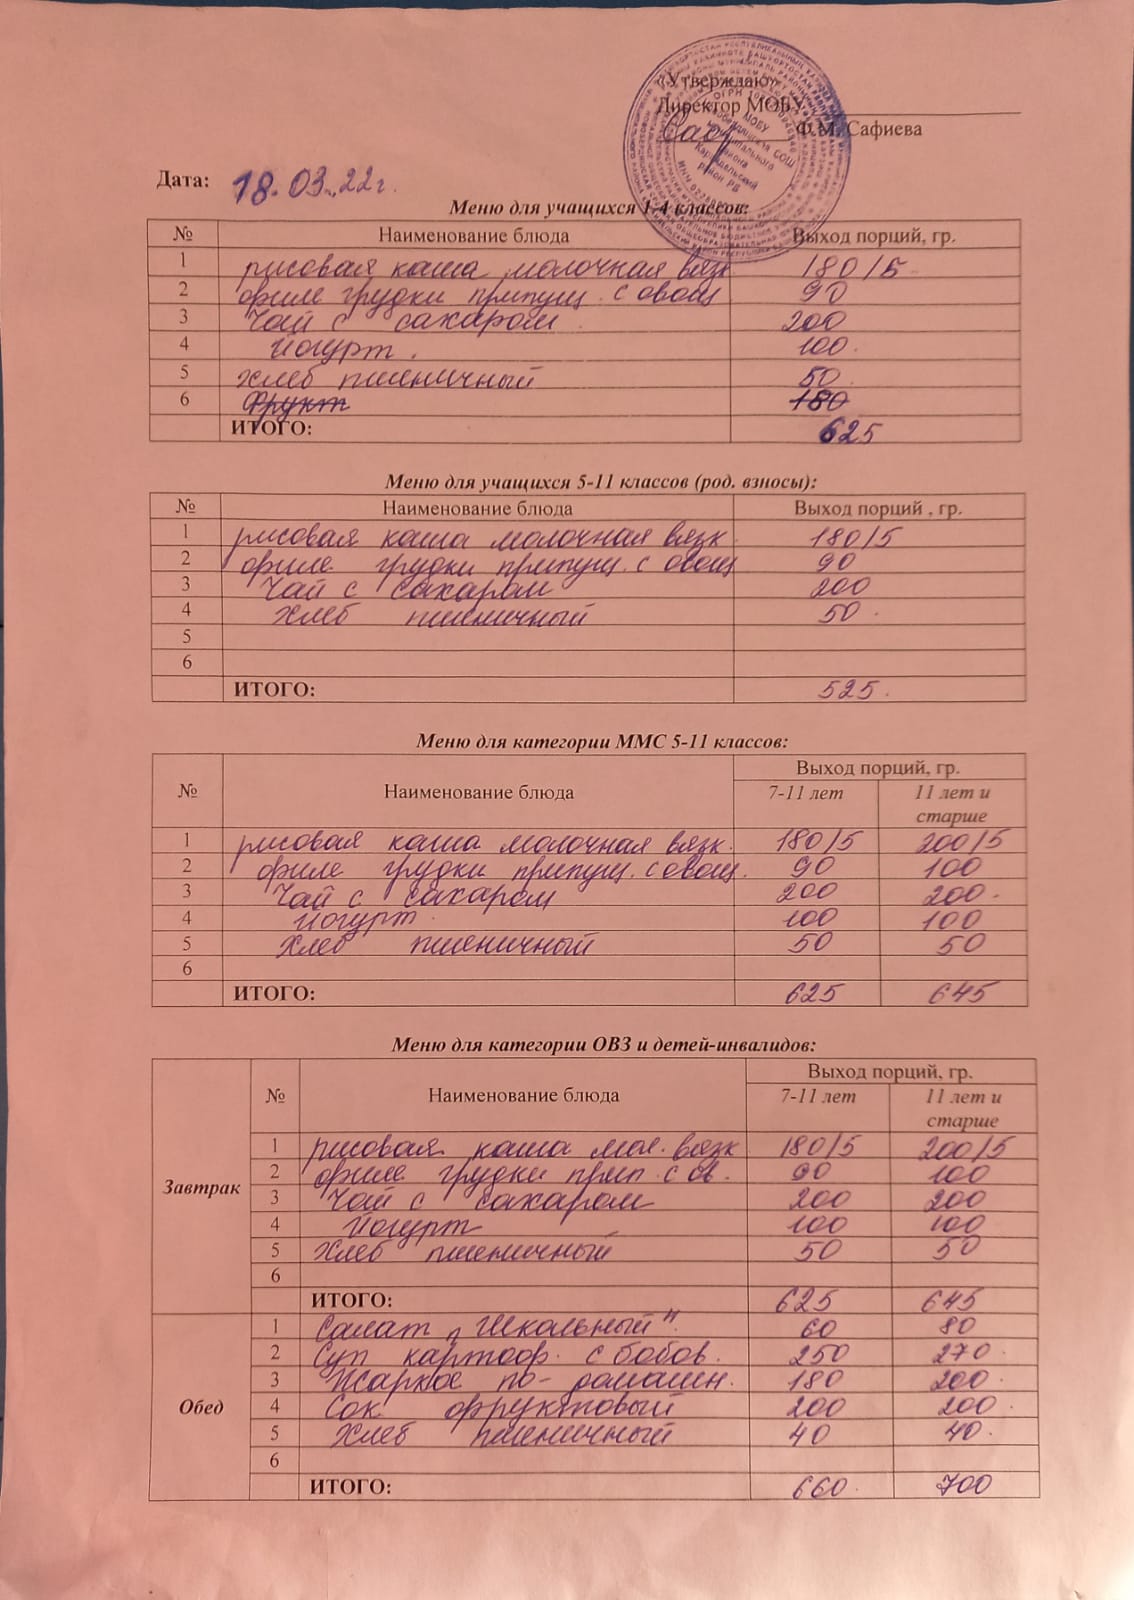 «Утверждаю»
Директор МОБУ
Ф.М. Сафиева
Дата: 18.03.22г.
Меню для учащихся 1-4 классов:
№ Наименование блюда Выход порций, гр.
1 рисовая каша молочная вязк 180/5
2 филе грудки припущ. с овощ 90
3 Чай с сахаром 200
4 Йогурт. 100.
5 Хлеб пшеничный 50
6 Фрукт 180
ИТОГО: 625
Меню для учащихся 5-11 классов (род. взносы):
№ Наименование блюда Выход порций , гр.
1 рисовая каша молочная вязк 180/5
2 филе грудки припущ. с овощ 90
3 Чай с сахаром 200
4 Хлеб пшеничный 50.
5
6
ИТОГО: 525.
Меню для категории ММС 5-11 классов:
№ Наименование блюда Выход порций, гр.
7-11 лет 11 лет и старше
1 рисовая каша молочная вязк. 180/5 200/5
2 филе грудки припущ. с овощ. 90 100
3 Чай с сахаром 200 200.
4 Йогурт 100 100
5 Хлеб пшеничный 50 50
6
ИТОГО: 625 645
Меню для категории ОВЗ и детей-инвалидов:
№ Наименование блюда Выход порций, гр.
7-11 лет 11 лет и старше
Завтрак
1 рисовая каша мол. вязк 180/5 200/5
2 филе грудки прип. с ов. 90 100
3 Чай с сахаром 200 200
4 Йогурт 100 100
5 Хлеб пшеничный 50 50
6
ИТОГО: 625 645
Обед
1 Салат „Школьный" 60 80
2 Суп картоф. с бобов. 250 270.
3 Жаркое по-домашн. 180 200.
4 Сок фруктовый 200 200.
5 Хлеб пшеничный 40 40.
6
ИТОГО: 660. 700